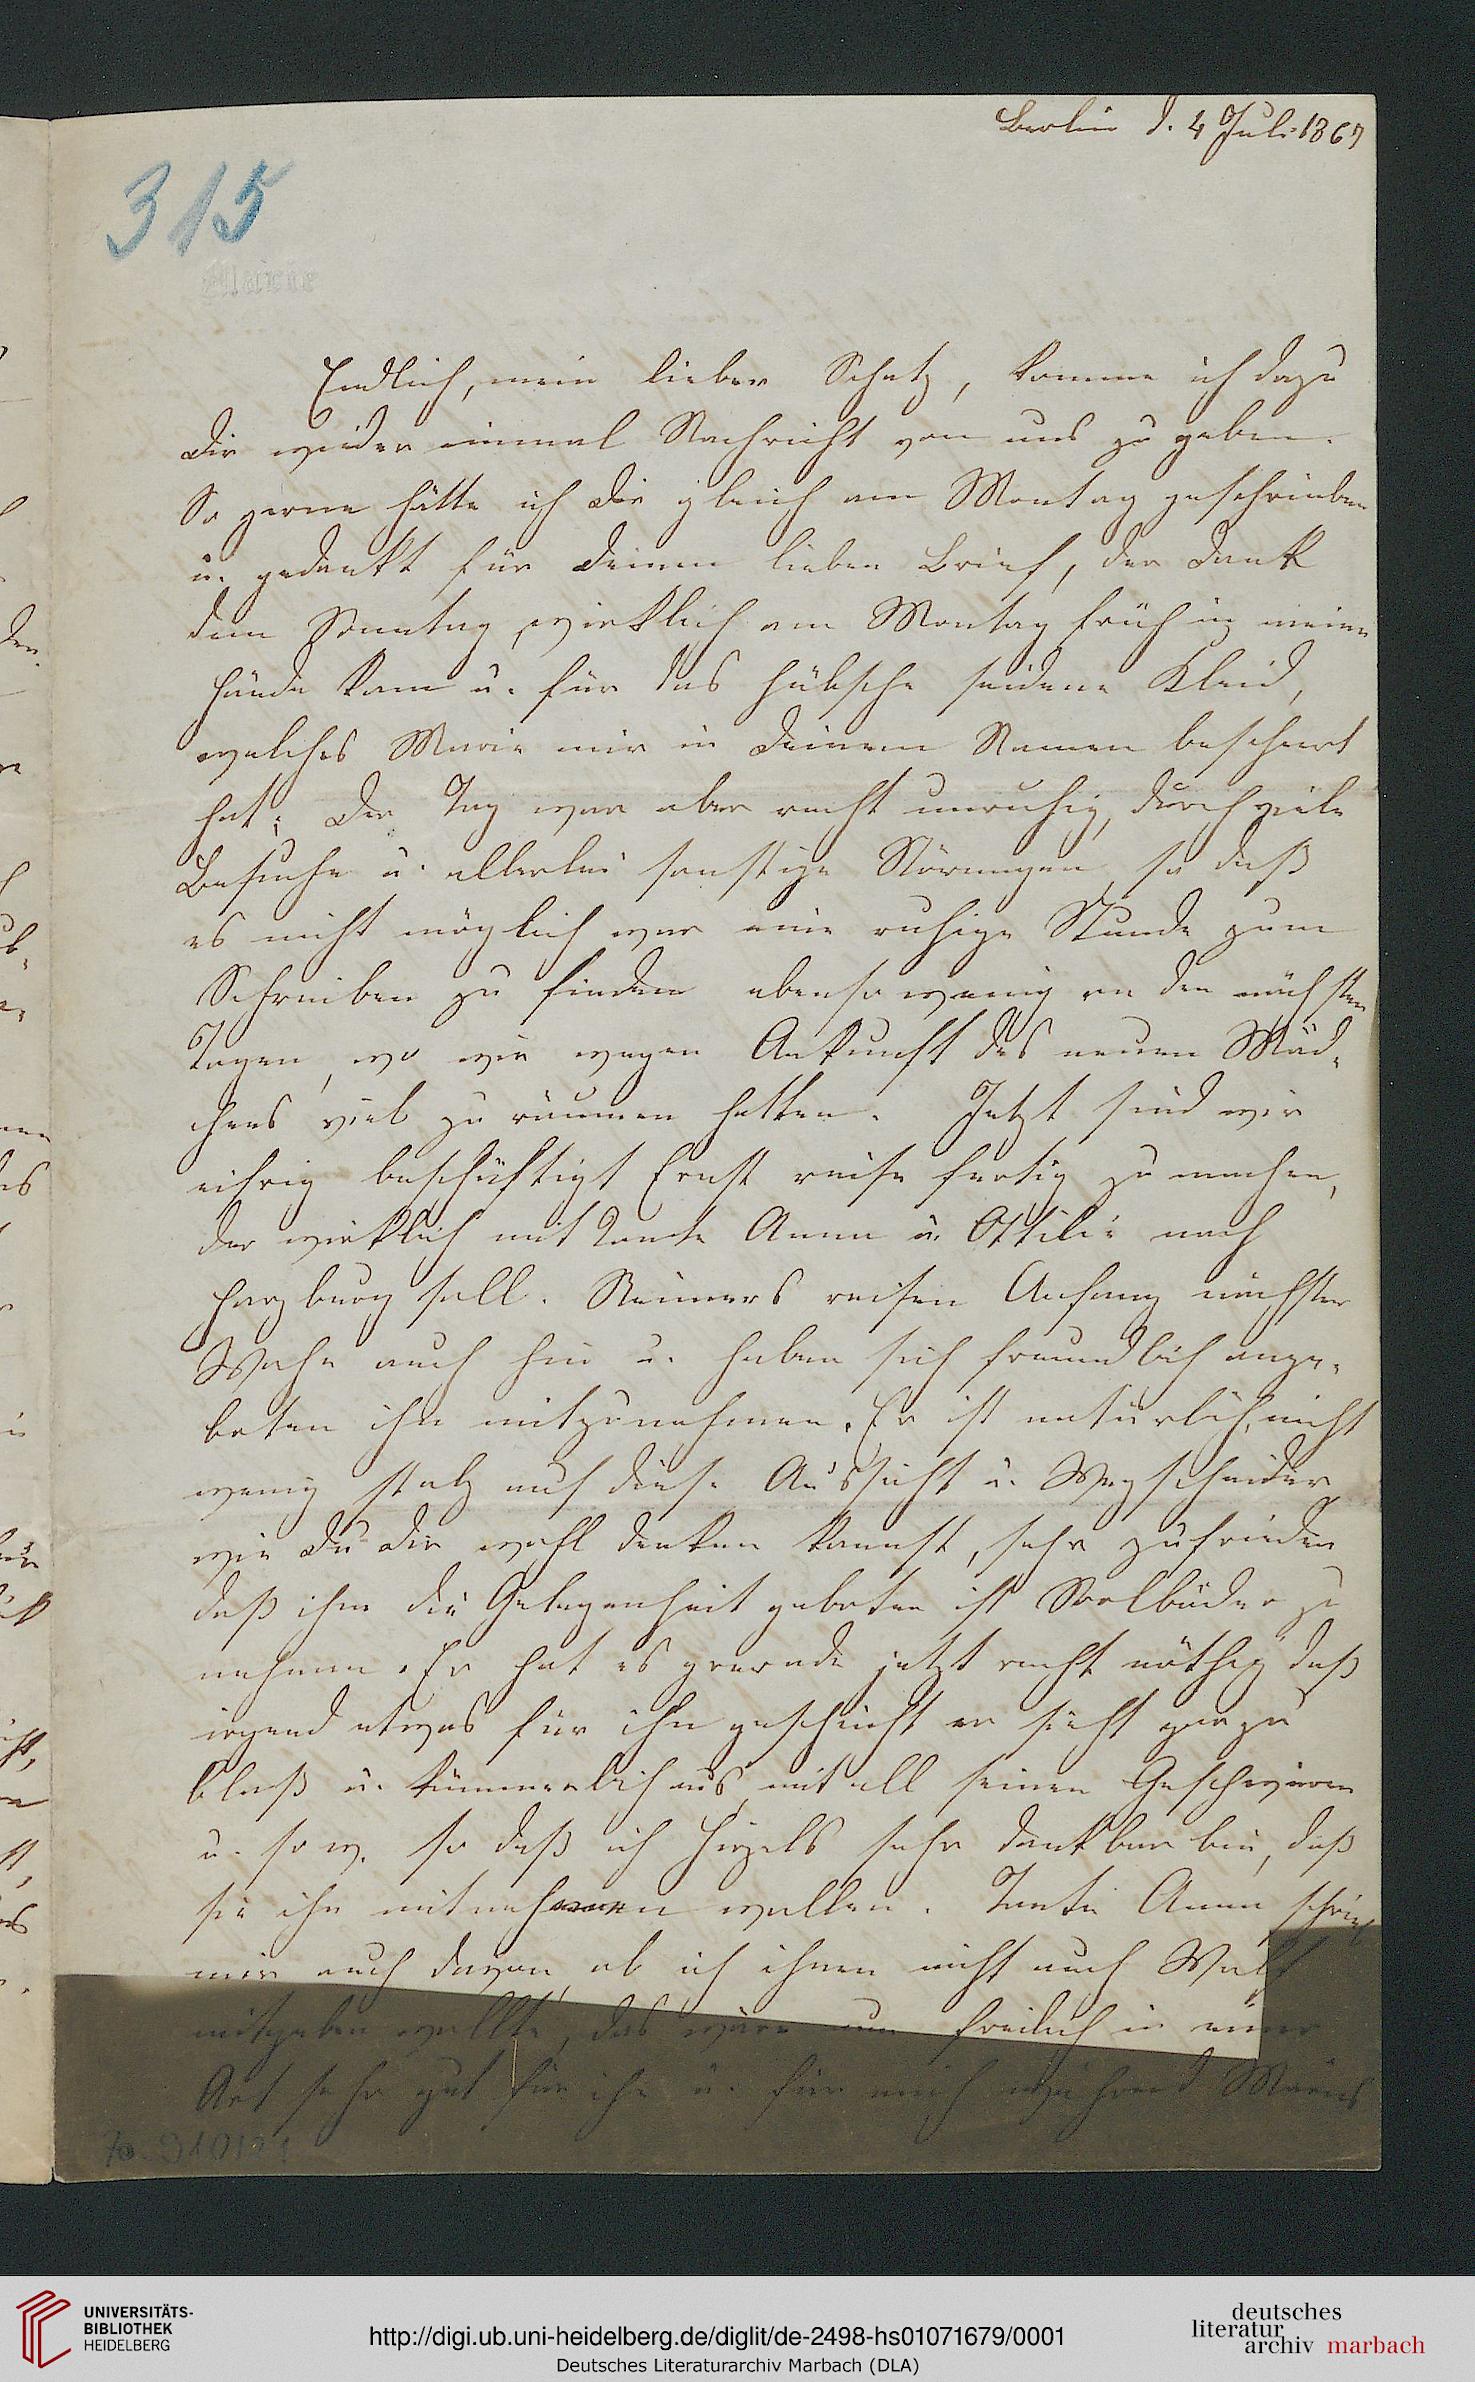 Berlin d. 4 Juli 1867
315
Endlich, mein lieber Schatz, komme ich dazu
Dir wieder einmal Nachricht von uns zu geben.
So gerne hätte ich Dir gleich am Montag geschrieben
u. gedankt für Deinen lieben Brief, der Dank
dem Sonntag, wirklich am Montag früh in meine
Hände kam u. für das hübsche seidene Kleid,
welches Marie mir in Deinem Namen beschert
hat; Der Tag war aber recht unruhig, durch viele
Besuche u. allerlei sonstige Störungen, so daß
es nicht möglich war eine ruhige Stunde zum
Schreiben zu finden ebenso wenig an den nächsten
Tagen, wo wir wegen Ankunft des neuen Mäd-
chens viel zu räumen hatten. Jetzt sind wir
eifrig beschäftigt Ernst reise fertig zu machen,
der wirklich mit Tante Anna u. Ottilie nach
Harzburg soll. Reimers reisen Anfang nächster
Woche auch hin u. haben sich freundlich ange-
boten ihn mitzunehmen. Er ist natürlich, nicht
wenig stolz auf diese Aussicht u. Wegscheider
wie Du Dir wohl denken kannst, sehr zufrieden
daß ihm die Gelegenheit geboten ist Soolbäder zu
nehmen. Er hat es gerade jetzt recht nöthig daß
irgend etwas für ihn geschieht er sieht gar zu
blaß u. kümmerlich aus, mit all seinen Geschwüren
u. so w. so daß ich Hirzels sehr dankbar bin, daß
sie ihn mitnehmen wollen. Tante Anna schrieb
mir auch davon ob ich ihnen nicht auch
mitgeben wollte, das wäre nun freilich in einer
Art sehr gut für ihn u. für mich während Maries
UNIVERSITÄTS-
BIBLIOTHEK
HEIDELBERG
http://digi.ub.uni-heidelberg.de/diglit/de-2498-hs01071679/0001
Deutsches Literaturarchiv Marbach (DLA)
deutsches
literatur
archiv marbach